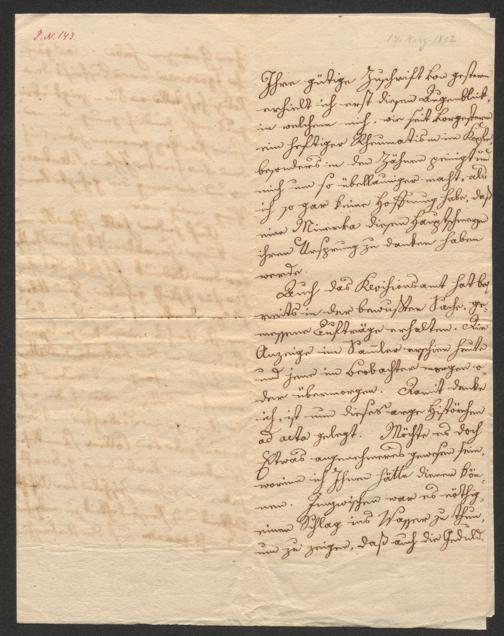 I.N. 143
14. Aug. 1812
Ihre gütige Zuschrift von gestern
erhielt ich erst diesen Augenblick,
in welchem mich, wie seit vorgestern
ein heftiger Rheumatism im Kopfe,
besonders in den Zähnen peinigt und
mich um so übellauniger macht, als
ich so gar keine Hoffnung habe, daß
eine Minerva diesen Hauptschmerzen
ihren Ursprung zu danken haben
werde.
Auch das Revisionsamt hat be-
reits in der bewußten Sache, ge-
messene Aufträge erhalten. Die
Anzeige im Samler erschien heute
und jene im Beobachter morgen o-
der übermorgen. Damit denke
ich, ist nun dieses arge Histörchen
ad acta gelegt. Möchte es doch
Etwas angenehmeres gewesen sein,
worinn ich Ihnen hätte dienen kön-
nen. Inzwischen war es nöthig,
einen Schlag ins Wasser zu thun,
um zu zeigen, daß auch die Geduld